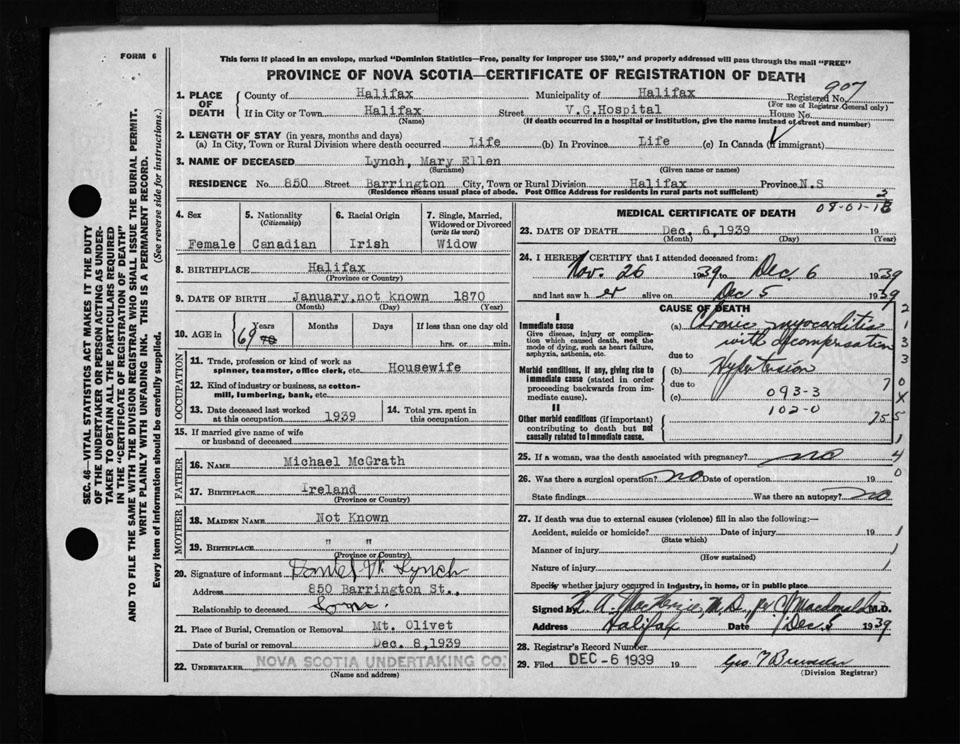 FORM 6
This form if placed in an envelope, marked "Dominion Statistics—Free, penalty for improper use $300," and properly addressed will pass through the mail "FREE"
PROVINCE OF NOVA SCOTIA—CERTIFICATE OF REGISTRATION OF DEATH
907
1. PLACE OF DEATH County of Halifax Municipality of Halifax Registered No.
(For use of Registrar General only)
If in City or Town Halifax Street V.G.Hospital House No.
(Name) (If death occurred in a hospital or institution, give the name instead of street and number)
2. LENGTH OF STAY (in years, months and days)
(a) In City, Town or Rural Division where death occurred Life (b) In Province Life (c) In Canada (if immigrant)
3. NAME OF DECEASED Lynch, Mary Ellen
(Surname) (Given name or names)
RESIDENCE No. 850 Street Barrington City, Town or Rural Division Halifax Province N.S
(Residence means usual place of abode. Post Office Address for residents in rural parts not sufficient)
4. Sex Female
5. Nationality (Citizenship) Canadian
6. Racial Origin Irish
7. Single, Married, Widowed or Divorced (write the word) Widow
8. BIRTHPLACE Halifax
(Province or Country)
9. DATE OF BIRTH January, not known 1870
(Month) (Day) (Year)
10. AGE in Years Months Days If less than one day old
69 hrs. or min.
OCCUPATION
11. Trade, profession or kind of work as spinner, teamster, office clerk, etc. Housewife
12. Kind of industry or business, as cotton-mill, lumbering, bank, etc.
13. Date deceased last worked at this occupation 1939
14. Total yrs. spent in this occupation
15. If married give name of wife or husband of deceased
FATHER
16. NAME Michael McGrath
17. BIRTHPLACE Ireland
(Province or Country)
MOTHER
18. MAIDEN NAME Not Known
19. BIRTHPLACE " "
(Province or Country)
20. Signature of informant Daniel W. Lynch
Address 850 Barrington St.,
Relationship to deceased Son
21. Place of Burial, Cremation or Removal Mt. Olivet
Date of burial or removal Dec. 8, 1939
22. UNDERTAKER NOVA SCOTIA UNDERTAKING CO.
(Name and address)
MEDICAL CERTIFICATE OF DEATH
23. DATE OF DEATH Dec. 6,1939 19
(Month) (Day) (Year)
24. I HEREBY CERTIFY that I attended deceased from:
Nov. 26 1939 to Dec 6 1939
and last saw h er alive on Dec 5 1939
CAUSE OF DEATH
I
Immediate cause
Give disease, injury or complication which caused death, not the mode of dying, such as heart failure, asphyxia, asthenia, etc.
(a) Cronic myocarditis
with decompensation
due to
Morbid conditions, if any, giving rise to immediate cause (stated in order proceeding backwards from immediate cause).
(b) Hypertension
due to
(c) 093-3
102-0
II
Other morbid conditions (if important) contributing to death but not causally related to immediate cause.
25. If a woman, was the death associated with pregnancy? no
26. Was there a surgical operation? no Date of operation 19
State findings Was there an autopsy? no
27. If death was due to external causes (violence) fill in also the following:—
Accident, suicide or homicide? Date of injury 19
(State which)
Manner of injury
(How sustained)
Nature of injury
Specify whether injury occurred in industry, in home, or in public place
Signed by K. A. MacKenzie, M.D., per C Macdonald M.D.
Address Halifax Date Dec. 5 1939
28. Registrar's Record Number
29. Filed DEC - 6 1939 19
(Division Registrar)
SEC. 46—VITAL STATISTICS ACT MAKES IT THE DUTY
OF THE UNDERTAKER OR PERSON ACTING AS UNDER-
TAKER TO OBTAIN ALL THE PARTICULARS REQUIRED
IN THE "CERTIFICATE OF REGISTRATION OF DEATH"
AND TO FILE THE SAME WITH THE DIVISION REGISTRAR WHO SHALL ISSUE THE BURIAL PERMIT.
WRITE PLAINLY WITH UNFADING INK. THIS IS A PERMANENT RECORD.
Every item of Information should be carefully supplied. (See reverse side for instructions.)